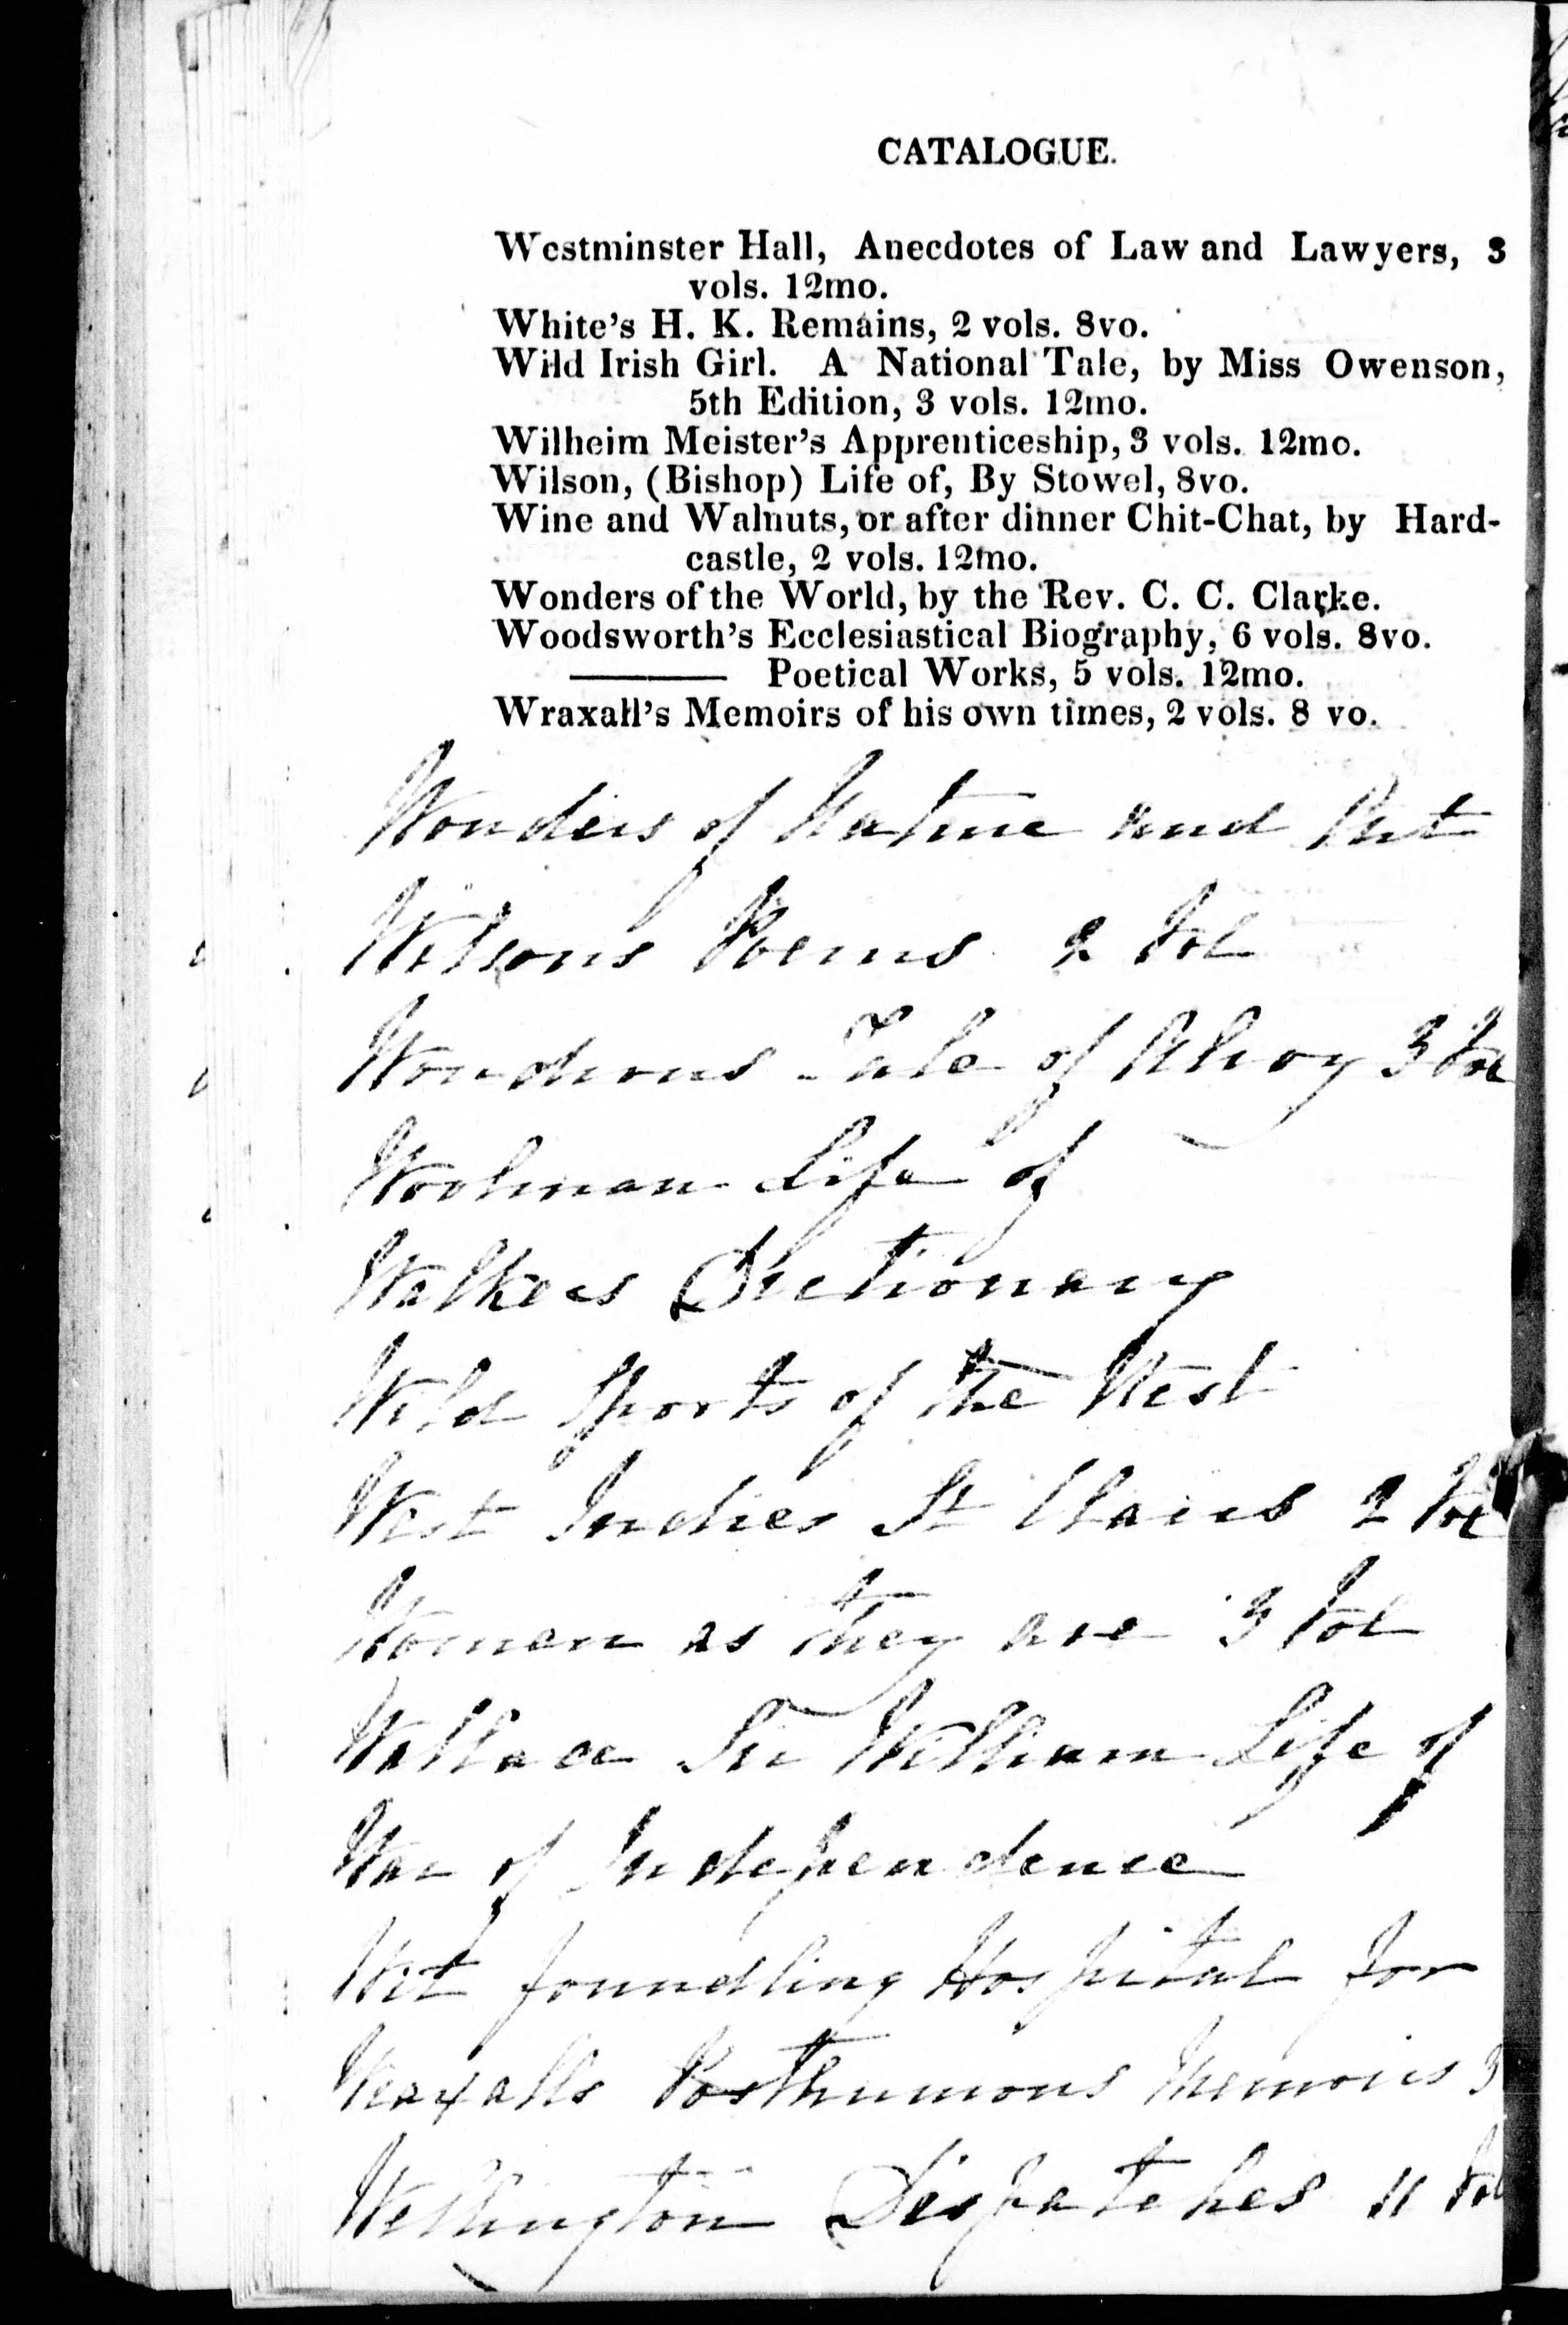 CATALOGUE.
Westminster Hall, Anecdotes of Law and Lawyers, 3
vols. 12mo.
White's H. K. Remains, 2 vols. 8vo.
Wild Irish Girl. A National Tale, by Miss Owenson,
5th Edition, 3 vols. 12mo.
Wilheim Meister's Apprenticeship, 3 vols. 12mo.
Wilson, (Bishop) Life of, By Stowel, 8vo.
Wine and Walnuts, or after dinner Chit-Chat, by Hard-
castle, 2 vols. 12mo.
Wonders of the World, by the Rev. C. C. Clarke.
Woodsworth's Ecclesiastical Biography, 6 vols. 8vo.
——— Poetical Works, 5 vols. 12mo.
Wraxall's Memoirs of his own times, 2 vols. 8 vo.
Wonders of Nature and Art
Wilsons Poems 2 Vol
Wondrous Tale of Alroy 3 Vol
Woolman Life of
Walkers Dictionary
Wild Sports of the West
West Indies St Clairs 2 Vol
Women as they are 3 Vol
Wallace Sir William Life of
War of Independence
Wit foundling Hospital for
Wraxalls Posthumous Memoirs 3
Wellington Dispatches 11 Vol